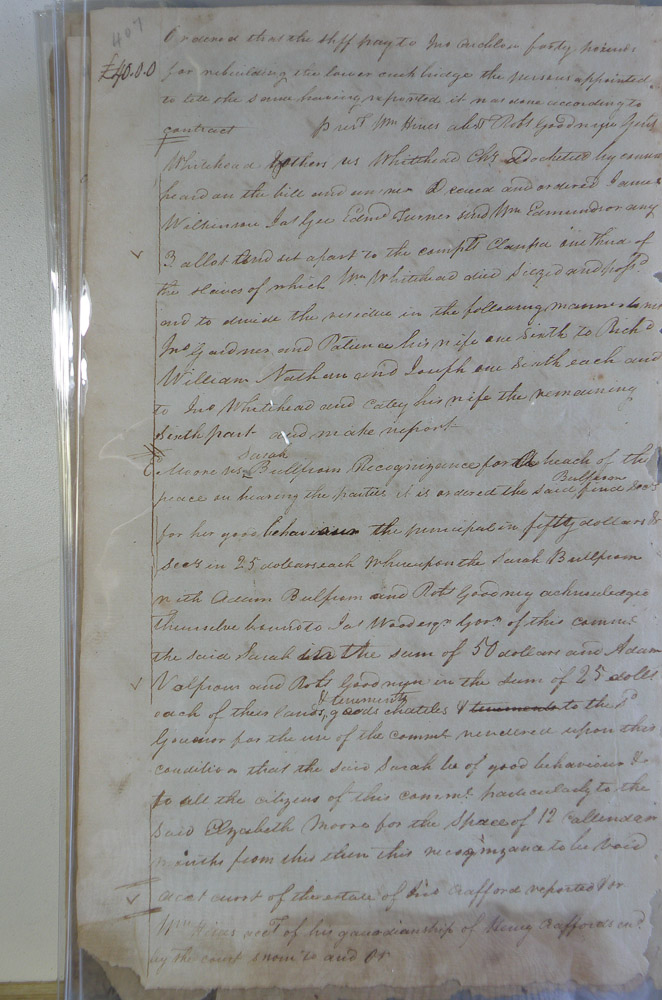 407
£40.0.0
Ordered that the shff pay to Jno forty pounds
for rebuilding the lower creek bridge the persons appointed
to let the same having reported it was done according to
contract prest Wm Hines abst Robt Goodwyn Gent
Whitehead & others vs Whitehead Chy Docketed by consent
heard on the bill and answer Decreed and ordered James
Wilkinson Jas Gee Edmd Turner and Wm Edmunds or any
3 allot and set apart to the complt one third of
the slaves of which Wm Whitehead died Seized and possd
and to divide the residue in the following manner to
Jno Gardner and Patience his wife one sixth to Richd
William Nathan and Joseph one sixth each and
to Jno Whitehead and Catey his wife the remaining
Sixth part and make report
Moore vs Sarah Bullifrom Recognizance for breach of the
peace on hearing the parties it is ordered the said Bullifrom find secy
for her good behaviour the principal in fifty dollars &
secy in 25 dollars each Whereupon the Sarah Bullifrom
with Adam Bulfrom and Robt Goodwyn acknowledge
themselve bound to Jas Wood esqr Govr of this commo
the said Sarah in the sum of 50 dollars and Adam
Valfrom and Robt Goodwyn in the sum of 25 dolls
each of their lands & tenements goods chatles & tenements to the sd
Governor for the use of the commo rendered upon this
condition that the said Sarah be of good behaviour &c
to all the citizens of this commo particularly to the
said Elizabeth Moore for the space of 12 callendar
months from this then this recognizance to be void
acct curot of the estate of Crafford reported & or
Wm Hines acct of his gaurdianship of Henry Crafford
by the court sworn to and Or